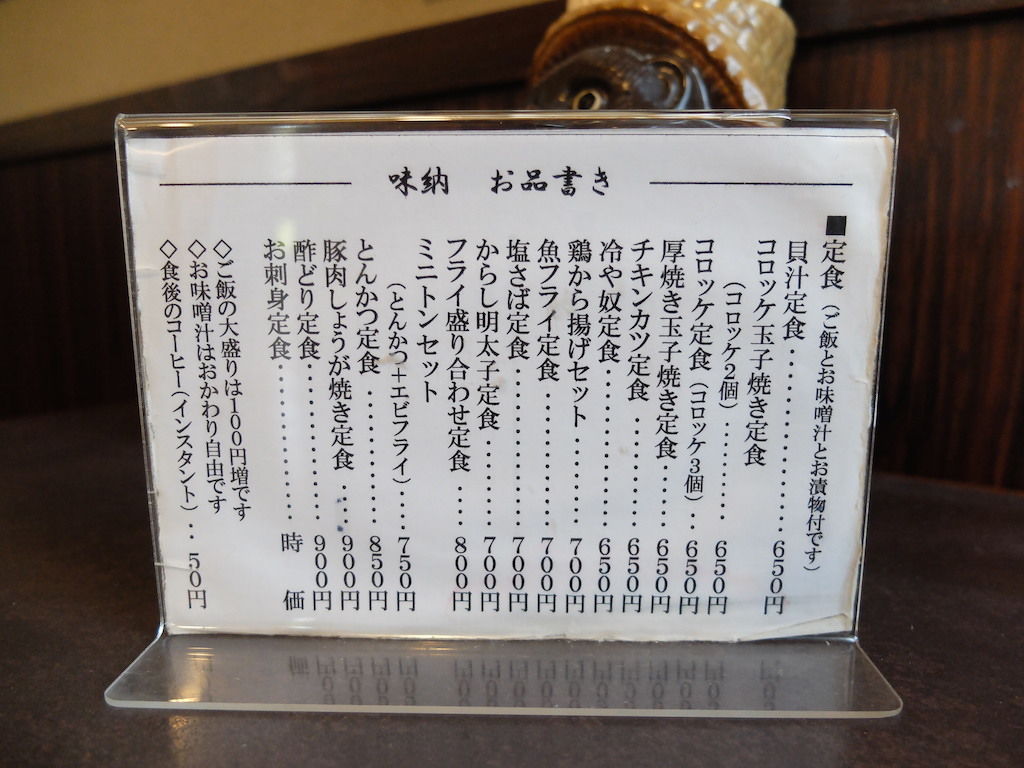 味納　お品書き
■定食（ご飯とお味噌汁とお漬物付です）
貝汁定食・・・・・・・・・・・・・650円
コロッケ玉子焼き定食
（コロッケ2個）・・・・・・・650円
コロッケ定食（コロッケ3個）・・650円
厚焼き玉子焼き定食・・・・・650円
チキンカツ定食・・・・・・・650円
冷や奴定食・・・・・・・・・・650円
鶏から揚げセット・・・・・・700円
魚フライ定食・・・・・・・・・700円
塩さば定食・・・・・・・・・・700円
からし明太子定食・・・・・・700円
フライ盛り合わせ定食・・・800円
ミニトンセット
（とんかつ＋エビフライ）・・・750円
とんかつ定食・・・・・・・・・850円
豚肉しょうが焼き定食・・・・900円
酢どり定食・・・・・・・・・・900円
お刺身定食・・・・・・・・・・時　価
◇ご飯の大盛りは100円増です
◇お味噌汁はおかわり自由です
◇食後のコーヒー（インスタント）・・50円